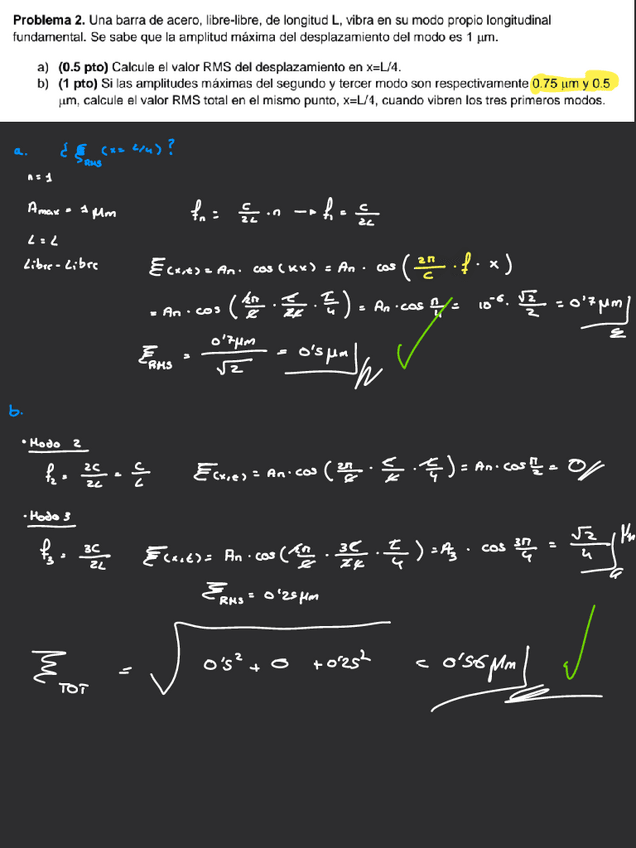 Problema 2. Una barra de acero, libre-libre, de longitud L, vibra en su modo propio longitudinal
fundamental. Se sabe que la amplitud máxima del desplazamiento del modo es 1 μm.
a) (0.5 pto) Calcule el valor RMS del desplazamiento en x=L/4.
b) (1 pto) Si las amplitudes máximas del segundo y tercer modo son respectivamente 0.75 μm y 0.5
μm, calcule el valor RMS total en el mismo punto, x=L/4, cuando vibren los tres primeros modos.
a. ¿ξRMS (x= L/4)?
n=1
Amax = 1 μm
fn = c/2L · n → f1 = c/2L
L = L
Libre-Libre
ξ(x,t) = An · cos (kx) = An · cos (2π/c · f · x)
= An · cos (2π/c · c/2L · L/4) = An · cos π/4 = 10^-6 · √2/2 = 0'7 μm
ξRMS = 0'7μm/√2 = 0'5 μm
b.
• Modo 2
f2 = 2c/2L = c/L
ξ(x,t) = An · cos (2π/c · c/L · L/4) = An · cos π/2 = 0
· Modo 3
f3 = 3c/2L
ξ(x,t) = An · cos (2π/c · 3c/2L · L/4) = A3 · cos 3π/4 = √2/4 μm
ξRMS = 0'25 μm
ξTOT = √(0'5² + 0 + 0'25²) = 0'56 μm